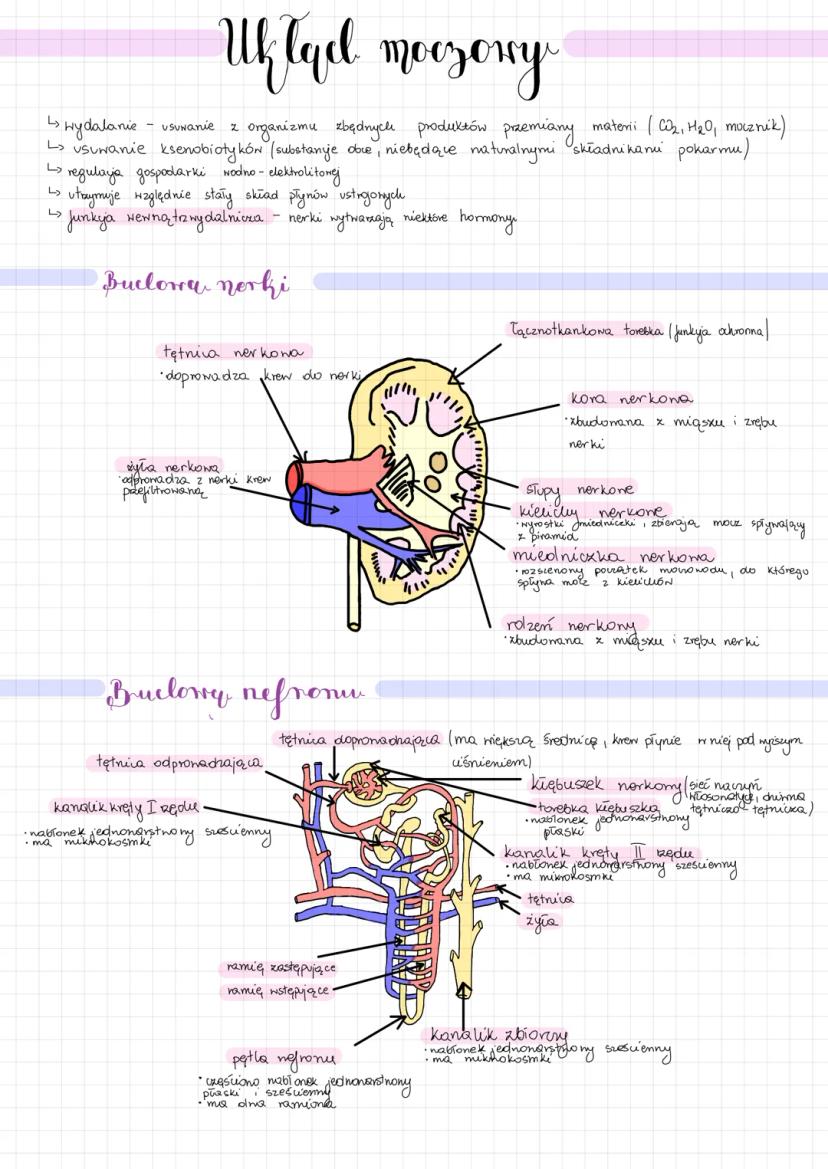 Układ moczowy
↳ wydalanie - usuwanie z organizmu zbędnych produktów przemiany materii (CO2, H2O, mocznik)
↳ usuwanie ksenobiotyków (substancje obce, niebędące naturalnymi składnikami pokarmu)
↳ regulacja gospodarki wodno-elektrolitowej
↳ utrzymuje względnie stały skład płynów ustrojowych
↳ funkcja wewnątrzwydalnicza - nerki wytwarzają niektóre hormony
Budowa nerki
łącznotkankowa torebka (funkcja ochronna)
tętnica nerkowa
·doprowadza krew do nerki
kora nerkowa
·zbudowana z miąższu i zrębu
nerki
żyła nerkowa
·odprowadza z nerki krew
przefiltrowaną
słupy nerkowe
kielichy nerkowe
·wyrostki miedniczki, zbierają mocz spływający
z piramid
miedniczka nerkowa
·rozszerzony początek moczowodu, do którego
spływa mocz z kielichów
rdzeń nerkowy
·zbudowana z miąższu i zrębu nerki
Budowa nefronu
tętnica doprowadzająca (ma większą średnicę, krew płynie w niej pod wyższym
ciśnieniem)
tętnica odprowadzająca
kłębuszek nerkowy (sieć naczyń
włosowatych, dziwna
tętniczo-tętnicza)
torebka kłębuszka
·nabłonek jednowarstwowy
płaski
kanalik kręty I rzędu
·nabłonek jednowarstwowy sześcienny
·ma mikrokosmki
kanalik kręty II rzędu
·nabłonek jednowarstwowy sześcienny
·ma mikrokosmki
tętnica
żyła
ramię zastępujące
ramię wstępujące
kanalik zbiorczy
·nabłonek jednowarstwowy sześcienny
·ma mikrokosmki
pętla nefronu
·częściowo nabłonek jednowarstwowy
płaski i sześcienny
·ma dwa ramiona